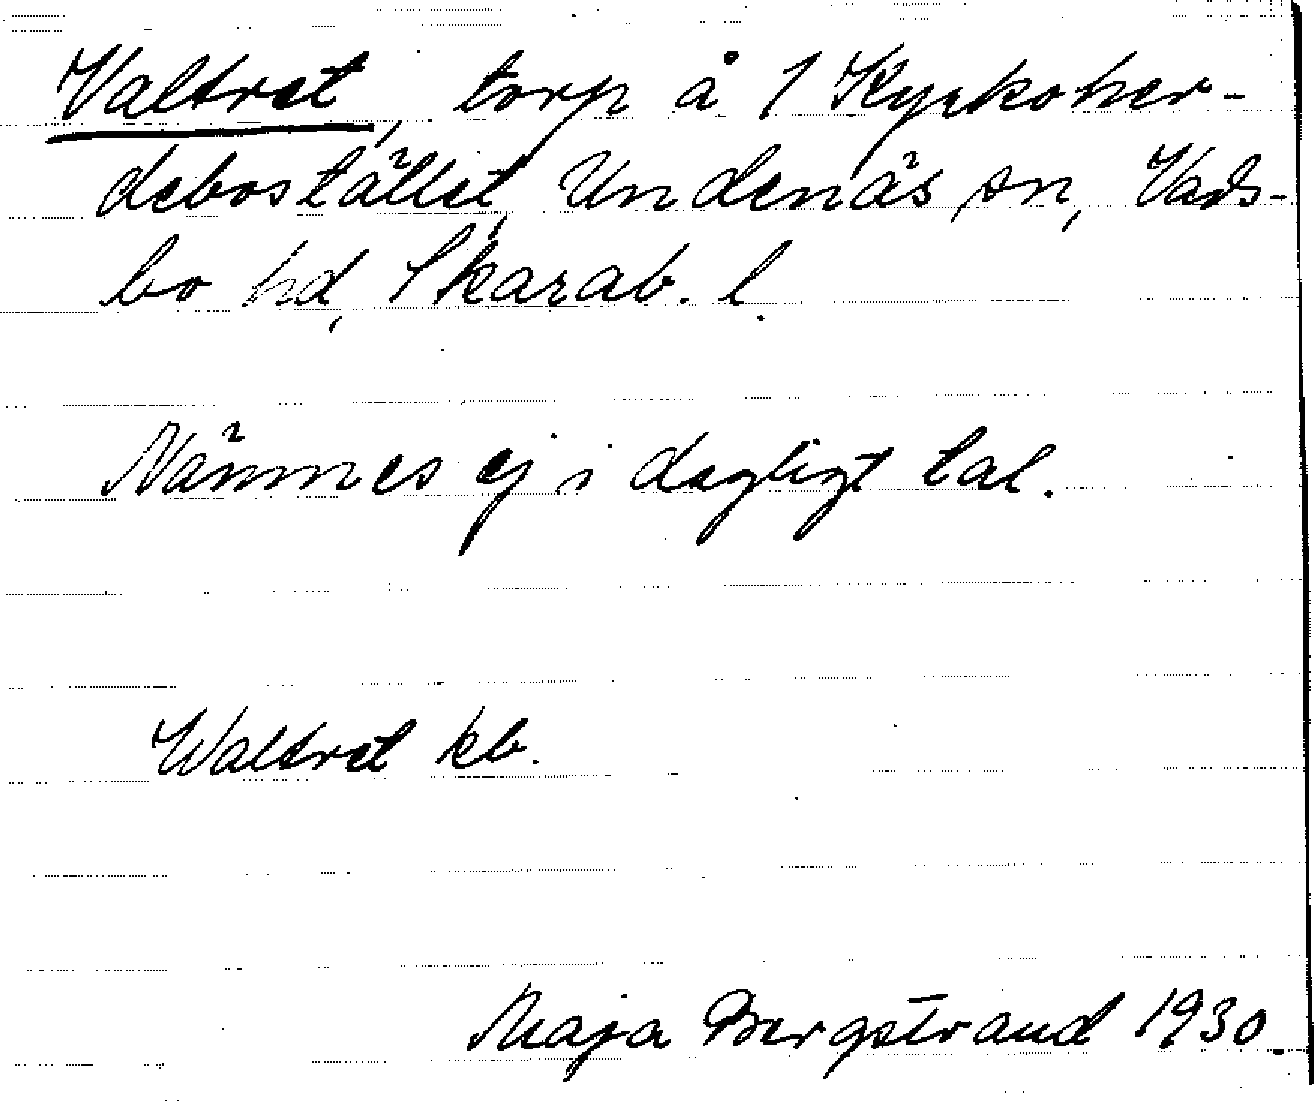 Valtret, torp å 1 Kyrkoher-
debostället, Undenäs sn, Vads-
bo hd, Skarab. l.
Nämnes ej i dagligt tal.
Waltret kb.
Maja Bergstrand 1930.